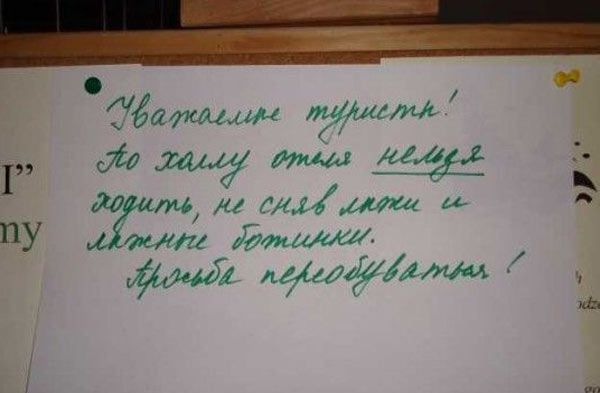 Уважаемые туристы!
По холлу отеля нельзя
I”
ходить, не сняв лыжи и
my
лыжные ботинки.
Просьба переобуваться!